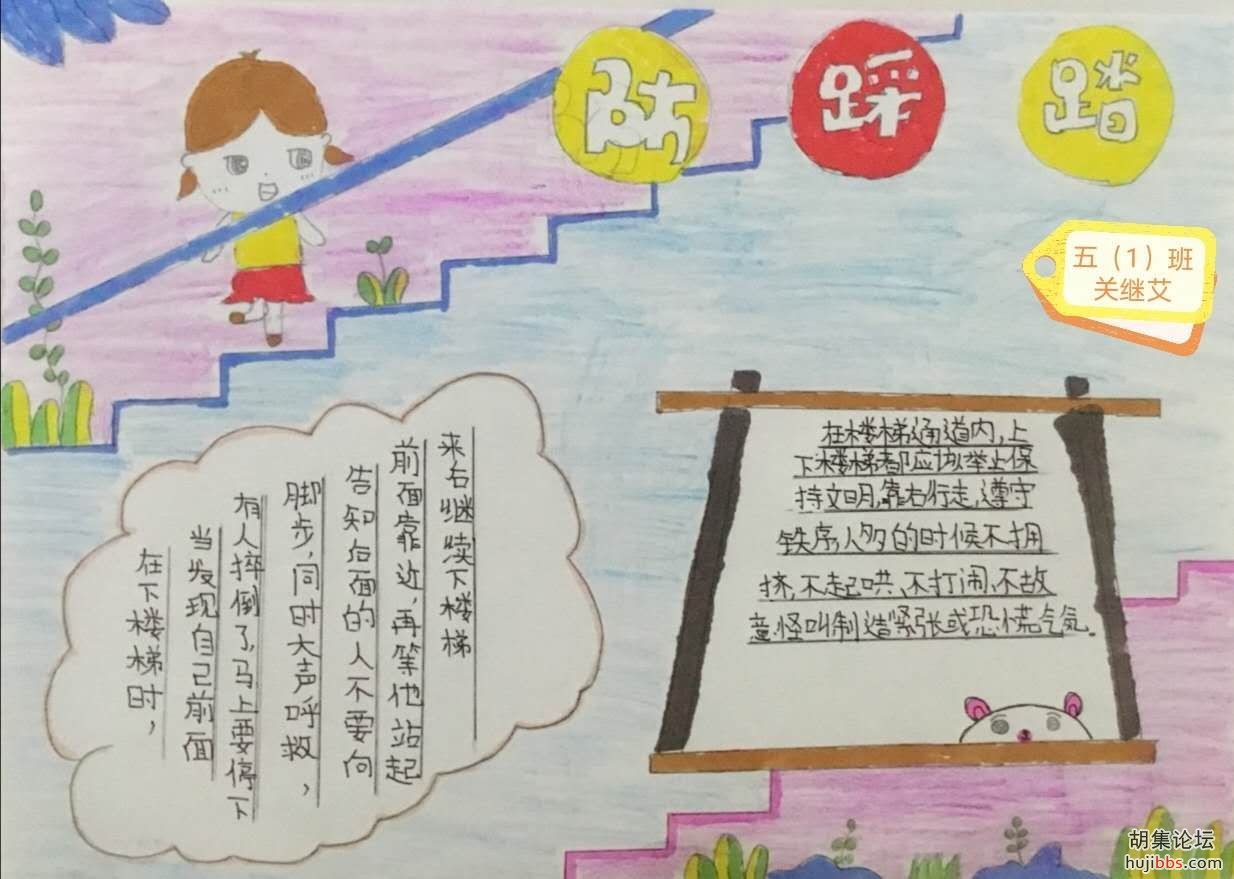 防踩踏
五（1）班
关继艾
在下楼梯时，
当发现自己前面
有人摔倒了，马上要停下
脚步，同时大声呼救，
告知后面的人不要向
前面靠近，再等他站起
来后继续下楼梯
在楼梯通道内，上
下楼梯都应该举止保
持文明，靠右行走，遵守
秩序，人多的时候不拥
挤，不起哄、不打闹、不故
意怪叫制造紧张或恐慌气氛。
胡集论坛
hujibbs.com